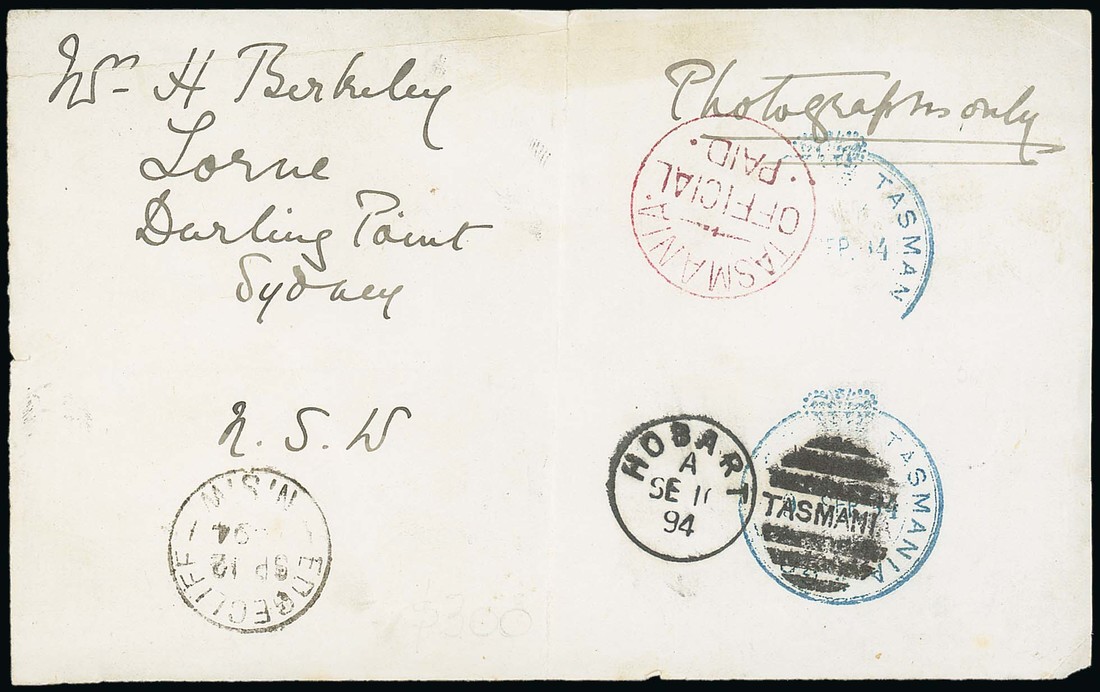 H Berkeley
Lorne
Darling Point
Sydney
N. S. W
Photographs only
TASMANIA
OFFICIAL
PAID
TASMAN
EP. 94
HOBART
A
SE 10
94
TASMANI
TASMANIA
EDGECLIFF
N.S.W
SP 12
94